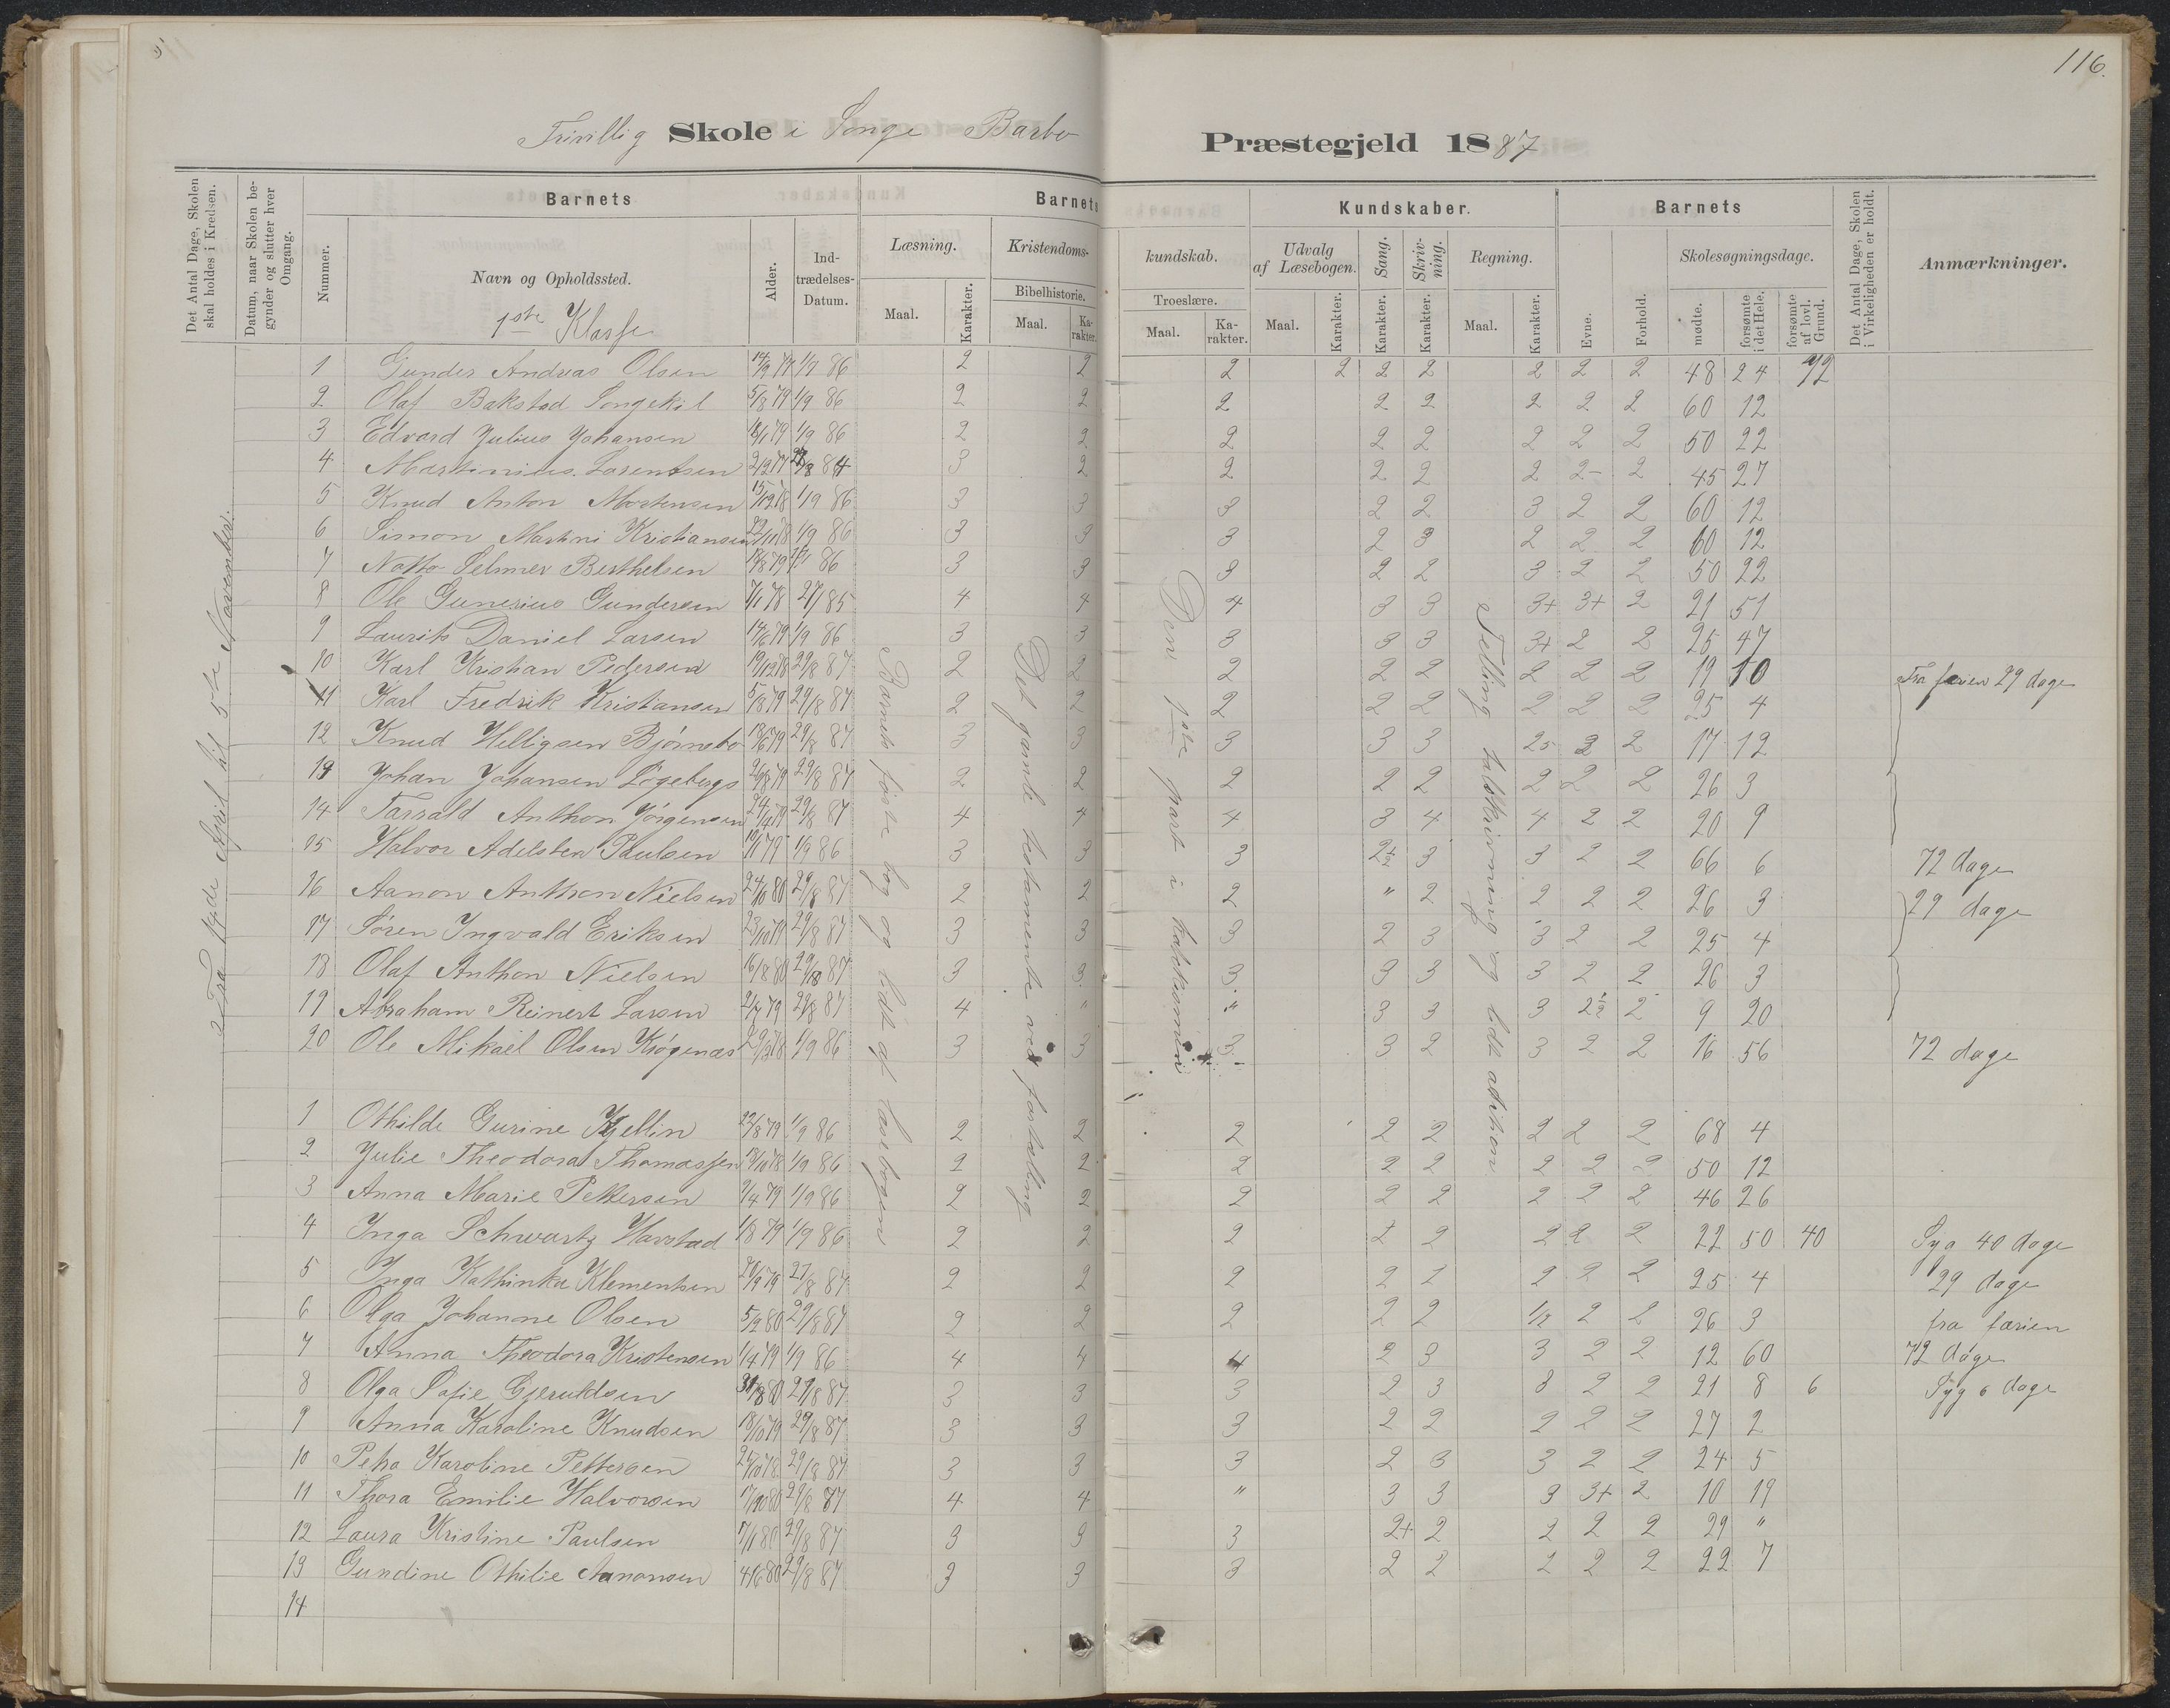 116.
Frivillig Skole i Songe Barbo Præstegjeld 1887
Det Antal Dage, Skolen skal holdes i Kredsen.
Datum, naar Skolen begynder og slutter hver Omgang.
Barnets
Nummer.
Navn og Opholdssted.
1ste Klasse
Alder.
Indtrædelses-Datum.
Barnets Kundskaber.
Læsning.
Maal.
Karakter.
Kristendomskundskab.
Bibelhistorie.
Maal.
Karakter.
Troeslære.
Maal.
Karakter.
Udvalg af Læsebogen.
Maal.
Karakter.
Sang.
Karakter.
Skrivning.
Karakter.
Regning.
Maal.
Karakter.
Barnets
Evne.
Forhold.
Skolesøgningsdage.
mødte.
forsømte i det Hele.
forsømte af lovl. Grund.
Det Antal Dage, Skolen i Virkeligheden er holdt.
Anmærkninger.
til 5te November.
Barnets første bog og lidt af læsebogen
Det gamle testamente ved fortælling
Den 1ste part i
Telling talskrivning og lidt adition
1 Gunder Andreas Olsen 1/9 86 2 2 2 2 2 2 2 2 2 48 24 72
2 Olaf Bakstad Songekil 5/8 79 1/9 86 2 2 2 2 2 2 2 2 60 12
3 Edvard Julius Johansen 1/9 86 2 2 2 2 2 2 2 2 50 22
4 Martinius Larentsen 3 2 2 2 2 2 2- 2 45 27
5 Knud Anton Mortensen 1/9 86 3 3 3 2 2 3 2 2 60 12
6 Simon Martini Kristiansen 1/9 86 3 3 3 2 3 2 2 2 60 12
7 Selmer Berthelsen 86 3 3 3 2 2 3 2 2 50 22
8 Ole Gunerius Gundersen 4 4 4 3 3 3+ 3+ 2 21 51
9 Laurits Daniel Larsen 1/9 86 3 3 3 3 3 3+ 2 2 25 47
10 Karl Kristian Pedersen 29/8 87 2 2 2 2 2 2 2 2 19 10 Fra færien 29 dage
11 Karl Fredrik Kristansen 5/8 79 29/8 87 2 2 2 2 2 2 2 2 25 4
12 Knud Helligsen Bjørnebo 29/8 87 3 3 3 3 3 2 2 17 12
13 Johan Johansen Løgebergs 29/8 87 2 2 2 2 2 2 2 2 26 3
14 Tarrald Anthon Jørgensen 24/4 79 29/8 87 4 4 4 3 4 4 2 2 20 9
15 Halvor Adelsten Paulsen 1/9 86 3 3 3 2½ 3 3 2 2 66 6 72 dage
16 Aanon Anthon Nielsen 29/8 87 2 2 2 " 2 2 2 2 26 3 29 dage
17 Søren Ingvald Eriksen 23/10 79 29/8 87 3 3 3 2 3 3 2 2 25 4
18 Olaf Anthon Nielsen 16/8 80 29/8 87 3 3 3 3 3 3 2 2 26 3
19 Abraham Reinert Larsen 29/8 87 4 " " 3 3 3 2½ 2 9 20
20 Ole Mikael Olsen 1/9 86 3 3 3 3 2 3 2 2 16 56 72 dage
1 Othilde Gurine Kjellin 22/8 79 1/9 86 2 2 2 2 2 2 2 2 68 4
2 Julie Theodora Thomassen 1/9 86 2 2 2 2 2 2 2 2 50 12
3 Anna Marie Pettersen 1/9 86 2 2 2 2 2 2 2 2 46 26
4 Inga Schwartz Havstad 1/8 79 1/9 86 2 2 2 2 2 2 2 2 22 50 40 Syg 40 dage
5 Inga Kathinka Klementsen 2 2 2 2 2 2 2 25 4 29 dage
6 Olga Johanne Olsen 5/2 80 29/8 87 2 2 2 2 2 2 2 26 3 fra færien
7 Anna Theodora Kristensen 1/4 79 1/9 86 4 4 4 2 3 3 2 2 12 60 72 dage
8 Olga Sofie Gjeruldsen 3 3 3 2 3 3 2 2 21 8 6 Syg 6 dage
9 Anna Karoline Knudsen 18/10 79 29/8 87 3 3 3 2 2 2 2 2 27 2
10 Petra Karoline Pettersen 29/8 87 3 3 3 2 3 3 2 2 24 5
11 Thora Emilie Halvorsen 29/8 87 4 4 " 3 3 3 3+ 2 10 19
12 Laura Kristine Paulsen 29/8 87 3 3 3 2+ 2 2 2 2 29 "
13 Gundine Othilie Aanonsen 4/6 80 29/8 87 3 3 3 2 2 2 2 2 22 7
14